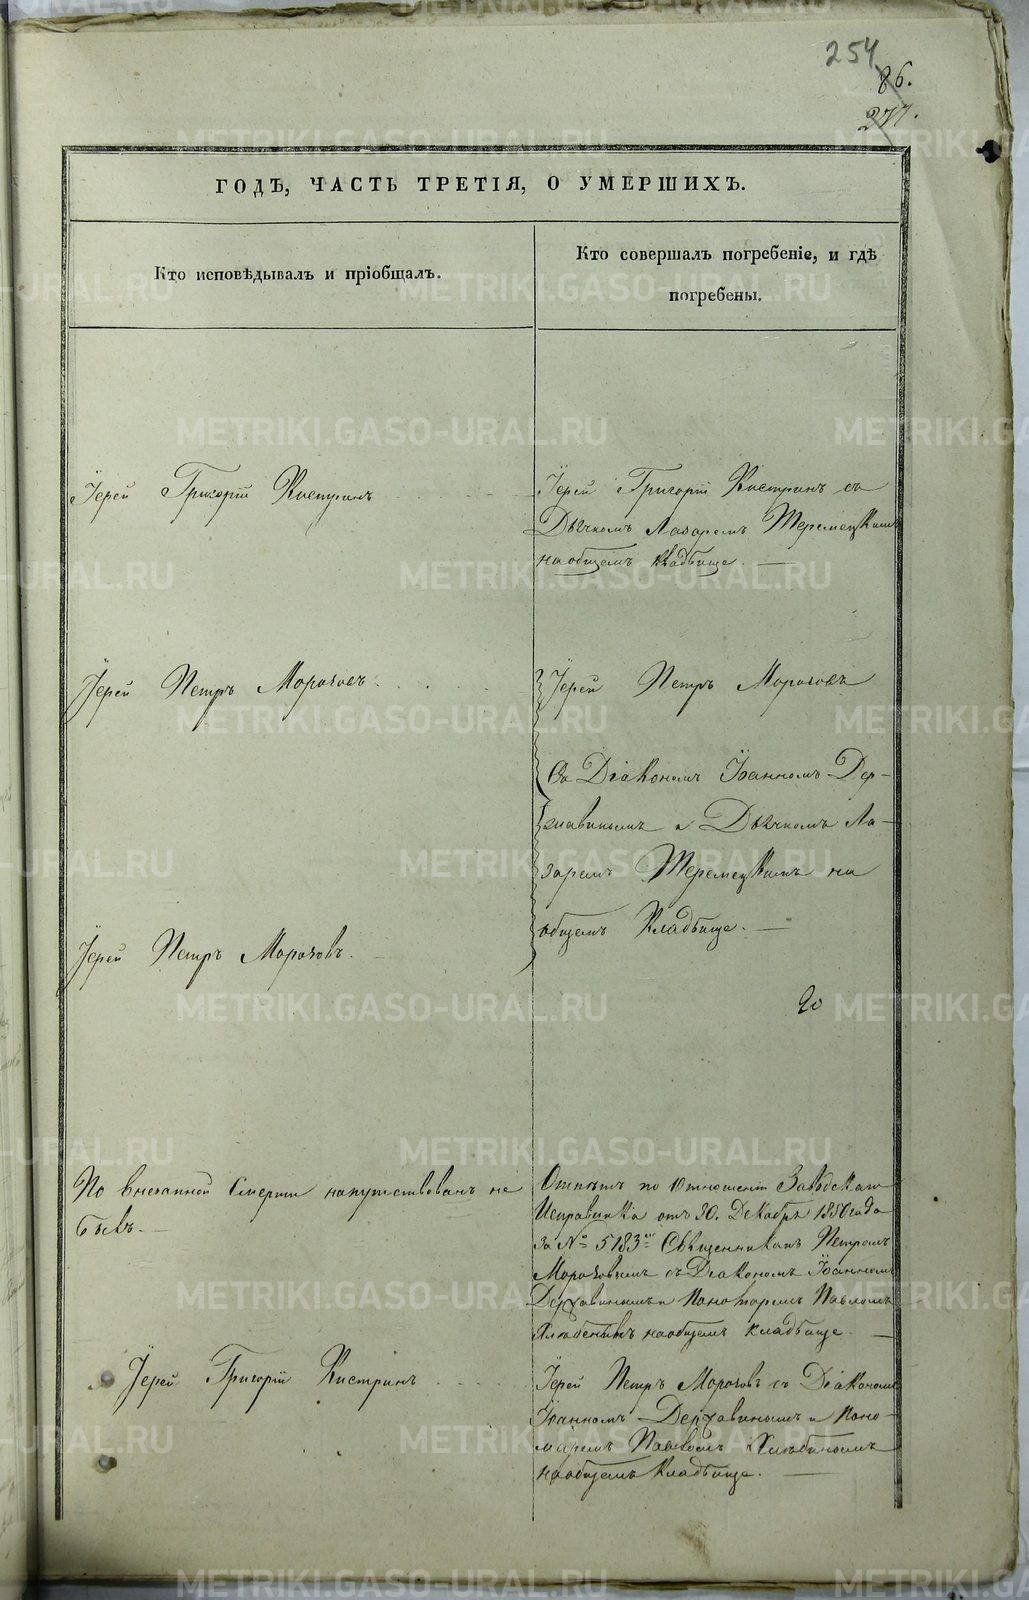 254
86.
277.
ГОДѢ, ЧАСТЬ ТРЕТІЯ, О УМЕРШИХЪ.
Кто исповѣдывалъ и пріобщалъ.
Кто совершалъ погребеніе, и гдѣ
погребены.
Іерей Григорій Кистринъ
Іерей Григорій Кистринъ съ
Дьячкомъ Лазаремъ Теремецкимъ
на общемъ кладбище.
Іерей Петръ Морозовъ.
Іерей Петръ Морозовъ
Съ Діакономъ Іоанномъ Дер-
жавинымъ и Дьячкомъ Ла-
заремъ Теремецкимъ на
общемъ Кладбище.
Іерей Петръ Морозовъ.
По внезапной Смерти напутствованъ не
былъ.
Отпѣтъ по Отношенію Заводскаго
Исправника отъ 30. Декабря 1850 года
за № 5183 Священникомъ Петромъ
Морозовымъ съ Діакономъ Іоанномъ
Державинымъ и Пономаремъ Павломъ
на общемъ кладбище.
Іерей Григорій Кистринъ
Іерей Петръ Морозовъ съ Діакономъ
Іоанномъ Державинымъ и Поно-
маремъ Павломъ
на общемъ Кладбище.
METRIKI.GASO-URAL.RU